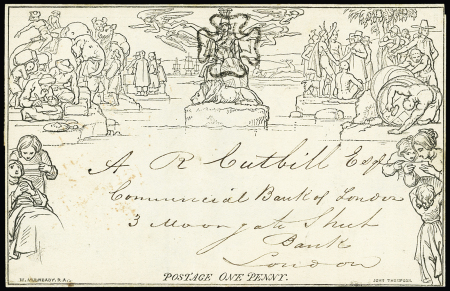 A R Cutbill Esqr
Commercial Bank of London
3 Moorgate Street
Bank
London
POSTAGE ONE PENNY.
W. MULREADY, R.A.
JOHN THOMPSON